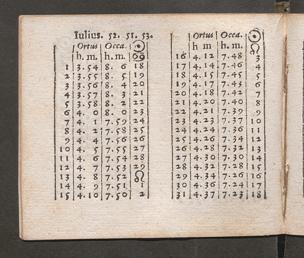 Iulius. 52. 51. 53.
Ortus Occa. ☉
h. m. h. m. ♋
1 3.54 8. 6 18
2 3.55 8. 5 19
3 3.56 8. 4 20
4 3.57 8. 3 21
5 3.58 8. 2 22
6 4. 0 8. 0 23
7 4. 1 7.59 24
8 4. 2 7.58 25
9 4. 4 7.56 26
10 4. 5 7.55 27
11 4. 6 7.54 28
12 4. 7 7.53 29
13 4. 8 7.52 ♌
14 4. 9 7.51 1
15 4.10 7.50 2
Ortus Occa. ☉
h m h. m. ♌
16 4.12 7.48 3
17 4.14 7.46 4
18 4.15 7.45 5
19 4.16 7.44 6
20 4.18 7.42 7
21 4.20 7.40 8
22 4.21 7.39 9
23 4.22 7.38 10
24 4.24 7.36 11
25 4.26 7.34 12
26 4.27 7.33 13
27 4.30 7.30 14
28 4.32 7.28 15
29 4.34 7.26 16
30 4.36 7.24 17
31 4.37 7.23 18